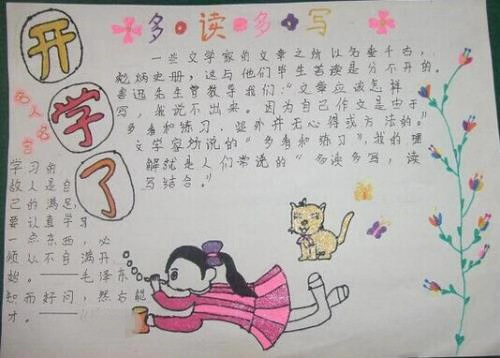 开学了
多读多写
名人名言
一些文学家的文章之所以名垂千古，
彪炳史册，这与他们毕生苦读是分不开的。
鲁迅先生曾教导我们：“文章应该怎样
写，我说不出来。因为自己作文是由于
多看和练习，此外并无心得或方法的。”
文学家劝说的“多看和练习”，我的理
解就是人们常说的“多读多写，读
写结合。”
学习的
敌人是自
己的满足，
要认真学习
一点东西，必
须从不自满开
始。——毛泽东
知而好问，然后能
才。——